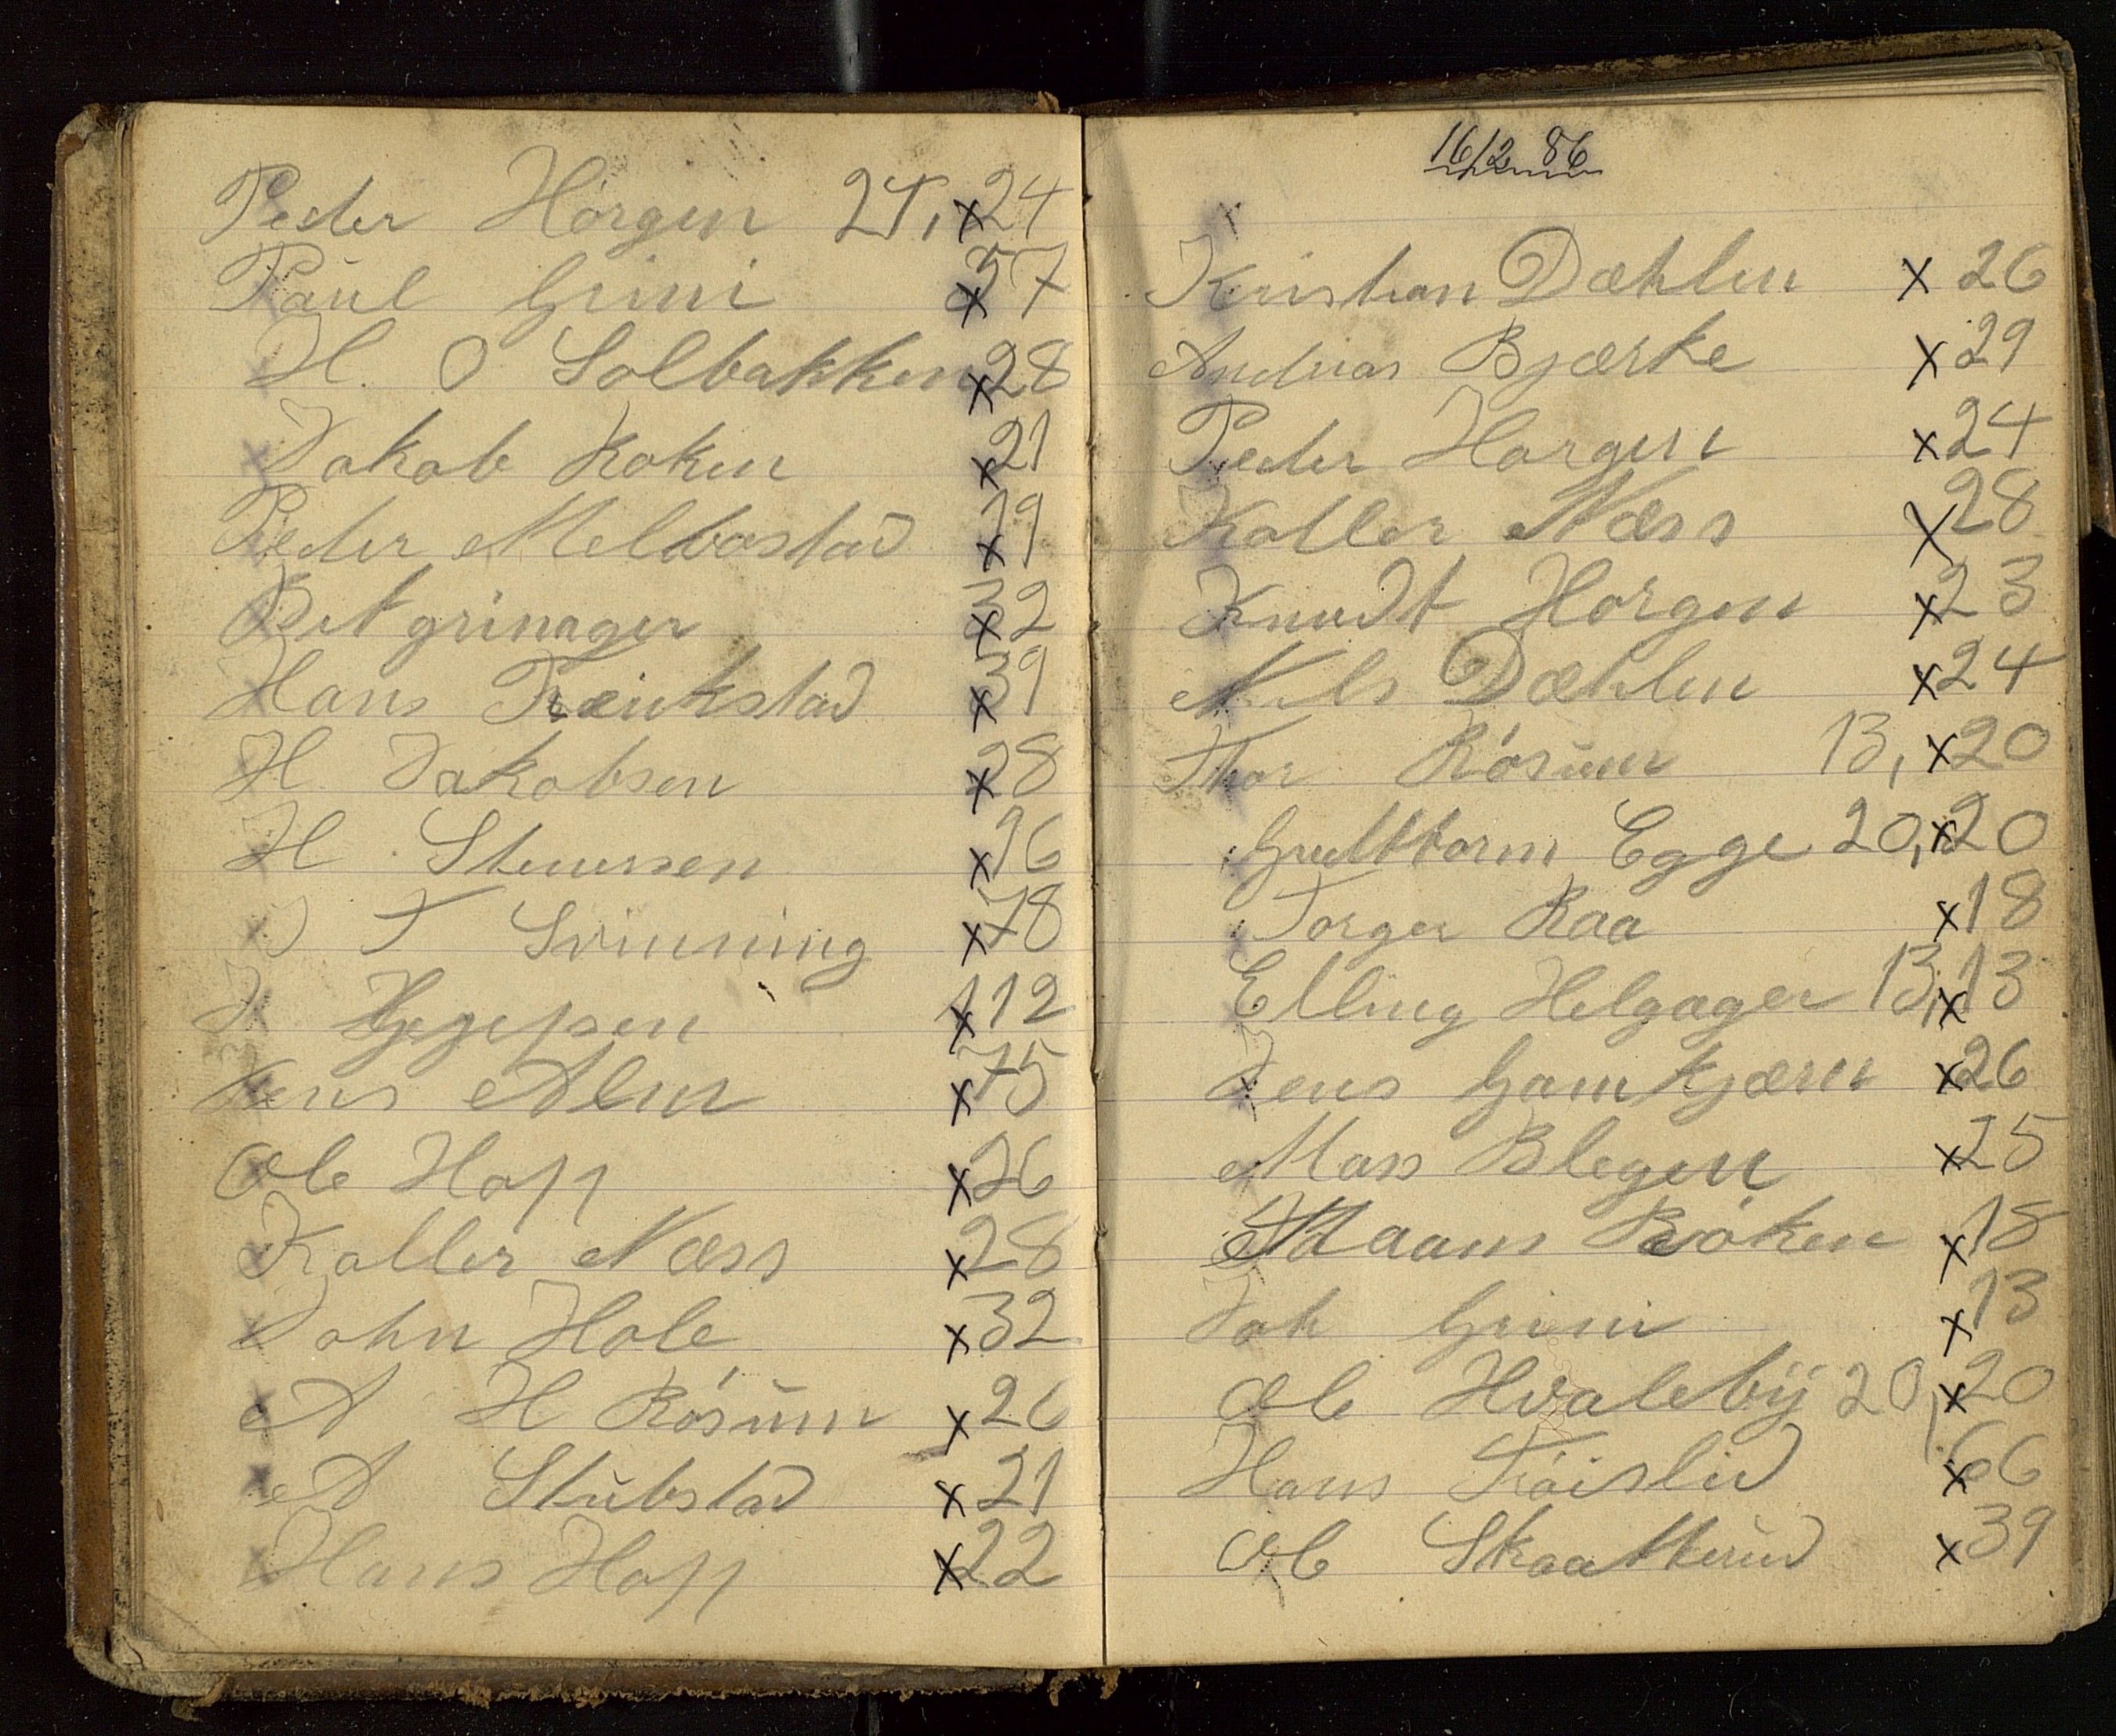 Peder Horgen 24, x 24
Paul Grini x 57
H. O Solbakken x 28
Jakob Koken x 21
Peder Melbostad x 19
Bet grinager x 32
Hans Trænkstad x 39
H. Jakobsen x 28
H Steuersen x 26
J T Svinning x 78
J x 112
Jens Alm x 75
Ole Hopp x 26
Koller Næss x 28
John Hole x 32
A H Rósum x 26
A Stubstad x 21
Hans Hopp x 22
16/2 86
Kristian Dæhlen x 26
Andreas Bjærke x 29
Peder Horgen x 24
Koller Næss x 28
Knudt Horgen x 23
Nils Dæhlen x 24
Thor Rósum 13, x 20
Gulttorm Egge 20, x 20
Torger Raa x 18
Elling Helgager 13, x 13
Jens Gamkjærn x 26
Mass Blegen x 25
Maans Róken x 18
Joh Grini x 13
Ole Hvaleby 20, x 20
Hans Tróislid x 66
Ole Skaatterud x 39